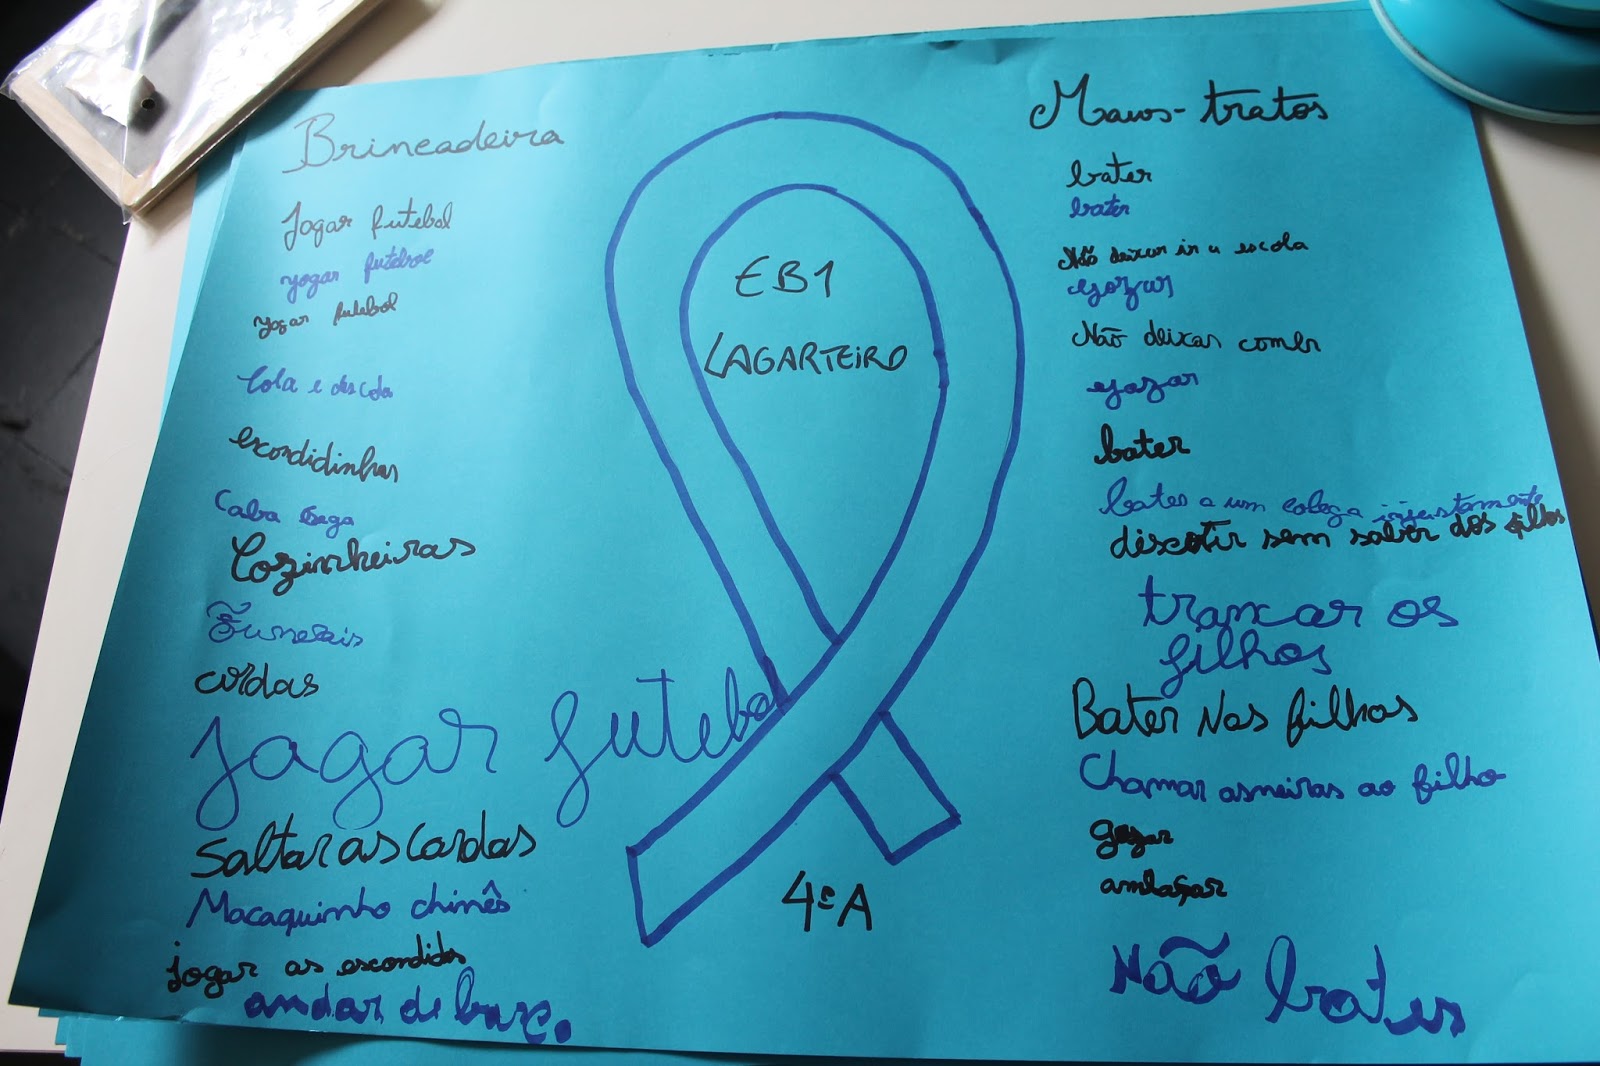 Brincadeira
Jogar futebol
jogar futebol
jogar futebol
Cola e descola
escondidinhas
Caba cega
Cozinheiras
Funerais
cordas
Jogar futebol
Saltar as cordas
Macaquinho chinês
jogar as escondidas
andar de barco
EB1
LAGARTEIRO
4ºA
Maus-tratos
bater
bater
Não deixar ir a escola
gozar
Não deixar comer
gozar
bater
bater a um colega injustamente
discotir sem saber dos filhos
trancar os
filhos
Bater Nos filhos
Chamar asneiras ao filho
gozar
Não bater